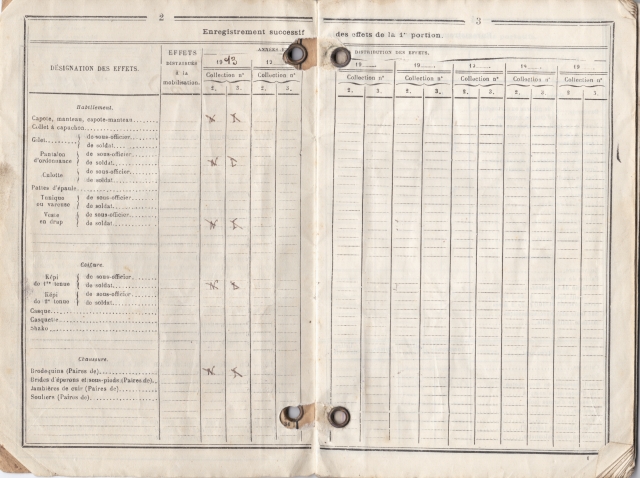 2
3
Enregistrement successif des effets de la 1re portion.
DÉSIGNATION DES EFFETS.
EFFETS DISTRIBUÉS à la mobilisation.
DISTRIBUTION DES EFFETS.
1913 13 19 19 13 19 19
Collection n° Collection n° Collection n° Collection n° Collection n° Collection n° Collection n°
2. 3. 2. 3. 2. 3. 2. 3. 2. 3. 2. 3. 2. 3.
Habillement.
Capote, manteau, capote-manteau
Collet à capuchon
Gilet de sous-officier
de soldat
Pantalon d'ordonnance de sous-officier
de soldat
Culotte de sous-officier
de soldat
Pattes d'épaule
Tunique ou vareuse de sous-officier
de soldat
Veste en drap de sous-officier
de soldat
Coiffure.
Képi de 1re tenue de sous-officier
de soldat
Képi de 2e tenue de sous-officier
de soldat
Casque
Casquette
Shako
Chaussure.
Brodequins (Paires de)
Brides d'éperons et sous-pieds (Paires de)
Jambières de cuir (Paires de)
Souliers (Paires de)